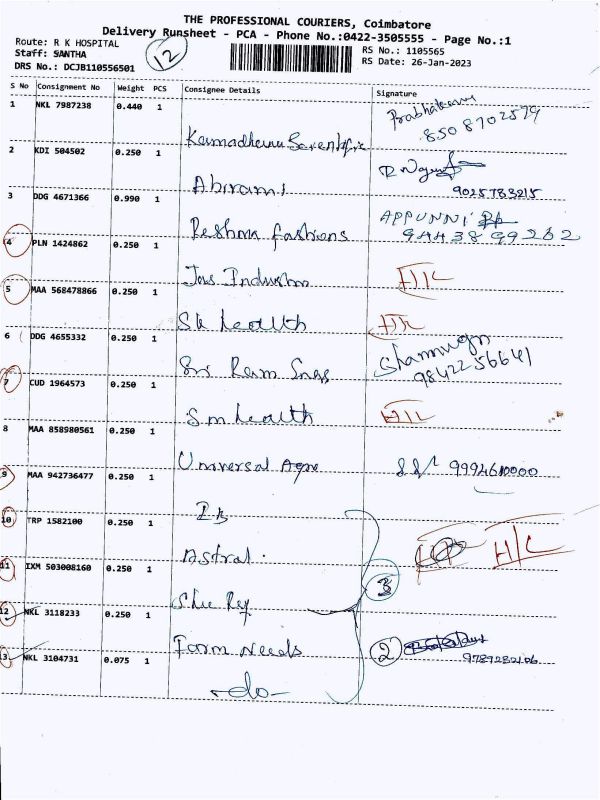 THE PROFESSIONAL COURIERS, Coimbatore
Delivery Runsheet - PCA - Phone No.:0422-3505555 - Page No.:1
Route: R K HOSPITAL
Staff: SANTHA
DRS No.: DCJB110556501
12
RS No.: 1105565
RS Date: 26-Jan-2023
S No Consignment No Weight PCS Consignee Details Signature
1 NKL 7987238 0.440 1 Kamadhenu
8508702579
2 KDI 504502 0.250 1 Abirami
9025783215
3 DDG 4671366 0.990 1 Reshma fashions APPUNNI
9443899262
4 PLN 1424862 0.250 1 H/C
5 MAA 568478866 0.250 1 Sk health H/C
6 DDG 4655332 0.250 1 Sri Ram
9842256641
7 CUD 1964573 0.250 1 Sm health H/C
8 MAA 858980561 0.250 1 Universal 9994610000
9 MAA 942736477 0.250 1
10 TRP 1582100 0.250 1 Astral. H/C
11 IXM 503008160 0.250 1 3
12 NKL 3118233 0.250 1 Farm Needs 2
13 NKL 3104731 0.075 1 -do- 9789282106